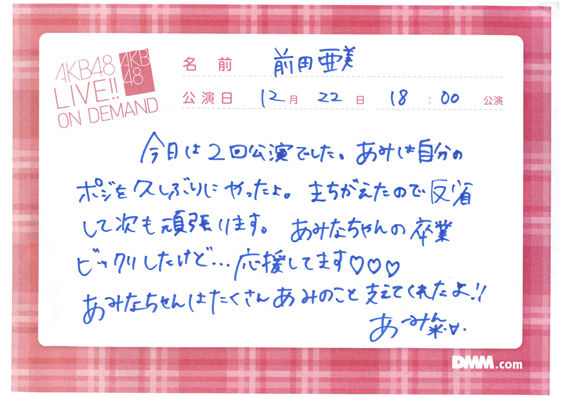 AKB48
LIVE!!
ON DEMAND
AKB
48
名前 前田亜美
公演日 12月 22日 18:00 公演
今日は2回公演でした。あみは自分の
ポジを久しぶりにやったよ。まちがえたので反省
して次も頑張ります。 あみなちゃんの卒業
ビックリしたけど…応援してます♡♡♡
あみなちゃんはたくさんあみのこと支えてくれたよ!!
あーみん
DMM.com